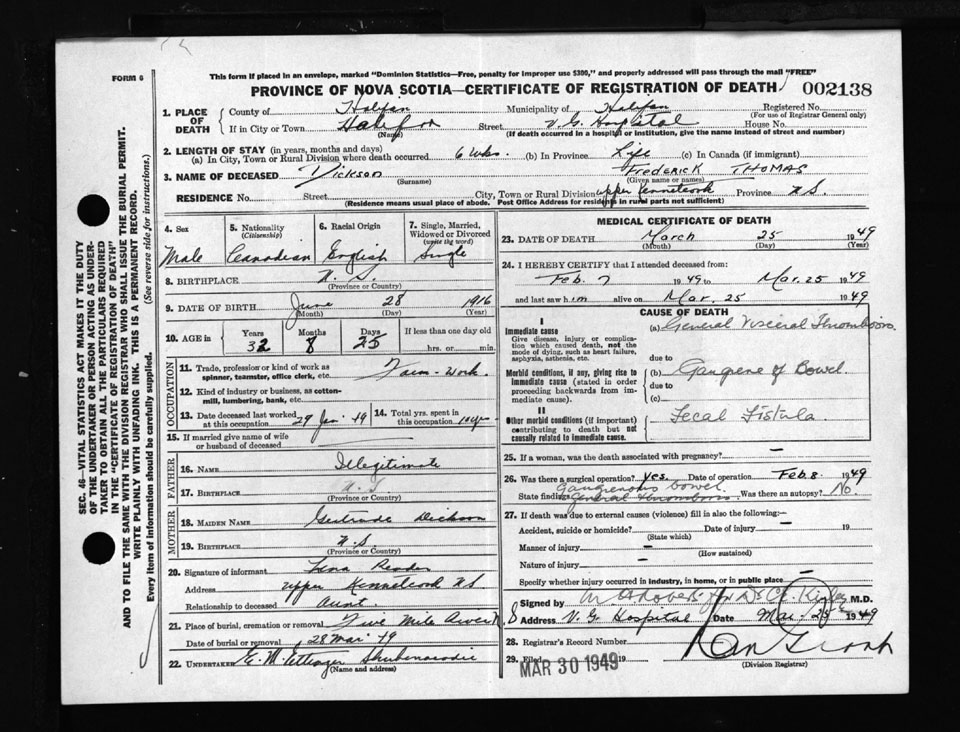 FORM 6
This form if placed in an envelope, marked "Dominion Statistics—Free, penalty for improper use $300," and properly addressed will pass through the mail "FREE"
PROVINCE OF NOVA SCOTIA—CERTIFICATE OF REGISTRATION OF DEATH
002138
1. PLACE OF DEATH
County of Halifax Municipality of Halifax Registered No.
(For use of Registrar General only)
If in City or Town Halifax Street V.G. Hospital House No.
(Name) (If death occurred in a hospital or institution, give the name instead of street and number)
2. LENGTH OF STAY (in years, months and days)
(a) In City, Town or Rural Division where death occurred 6 wks. (b) In Province Life (c) In Canada (if immigrant)
3. NAME OF DECEASED Dickson FREDERICK THOMAS
(Surname) (Given name or names)
RESIDENCE No. Street City, Town or Rural Division Upper Kennetcook Province N.S.
(Residence means usual place of abode. Post Office Address for residents in rural parts not sufficient)
4. Sex
Male
5. Nationality
(Citizenship)
Canadian
6. Racial Origin
English
7. Single, Married, Widowed or Divorced
(write the word)
Single
8. BIRTHPLACE N.S.
(Province or Country)
9. DATE OF BIRTH June 28 1916
(Month) (Day) (Year)
10. AGE in
Years Months Days If less than one day old
32 8 25 hrs. or min.
OCCUPATION
11. Trade, profession or kind of work as spinner, teamster, office clerk, etc. Farm-Work.
12. Kind of industry or business, as cotton-mill, lumbering, bank, etc.
13. Date deceased last worked at this occupation 29 Jan '49
14. Total yrs. spent in this occupation 10 yrs
15. If married give name of wife or husband of deceased
FATHER
16. NAME Illegitimate
17. BIRTHPLACE N.S.
(Province or Country)
MOTHER
18. MAIDEN NAME Gertrude Dickson
19. BIRTHPLACE N.S.
(Province or Country)
20. Signature of informant Lena
Address Upper Kennetcook N.S.
Relationship to deceased Aunt.
21. Place of burial, cremation or removal Five Mile River
Date of burial or removal 28 Mar '49
22. UNDERTAKER E. M. Ettinger Shubenacadie
(Name and address)
MEDICAL CERTIFICATE OF DEATH
23. DATE OF DEATH March 25 1949
(Month) (Day) (Year)
24. I HEREBY CERTIFY that I attended deceased from:
Feb 7 1949 to Mar. 25 1949
and last saw him alive on Mar. 25 1949
CAUSE OF DEATH
I
Immediate cause
Give disease, injury or complication which caused death, not the mode of dying, such as heart failure, asphyxia, asthenia, etc.
(a) General Visceral Thrombosis.
due to
Morbid conditions, if any, giving rise to immediate cause (stated in order proceeding backwards from immediate cause).
(b) Gangrene of Bowel.
due to
(c)
II
Other morbid conditions (if important) contributing to death but not causally related to immediate cause.
Fecal Fistula
25. If a woman, was the death associated with pregnancy? —
26. Was there a surgical operation? Yes. Date of operation Feb. 8. 1949
Gangrenous bowel.
State findings General thrombosis. Was there an autopsy? No.
27. If death was due to external causes (violence) fill in also the following:—
Accident, suicide or homicide? — Date of injury — 19
(State which)
Manner of injury —
(How sustained)
Nature of injury —
Specify whether injury occurred in industry, in home, or in public place —
Signed by M.D.
Address V. G. Hospital Date Mar. 25 1949
28. Registrar's Record Number
29. Filed MAR 30 1949 19
(Division Registrar)
SEC. 46—VITAL STATISTICS ACT MAKES IT THE DUTY
OF THE UNDERTAKER OR PERSON ACTING AS UNDER-
TAKER TO OBTAIN ALL THE PARTICULARS REQUIRED
IN THE "CERTIFICATE OF REGISTRATION OF DEATH"
AND TO FILE THE SAME WITH THE DIVISION REGISTRAR WHO SHALL ISSUE THE BURIAL PERMIT.
WRITE PLAINLY WITH UNFADING INK. THIS IS A PERMANENT RECORD.
Every item of information should be carefully supplied. (See reverse side for instructions.)